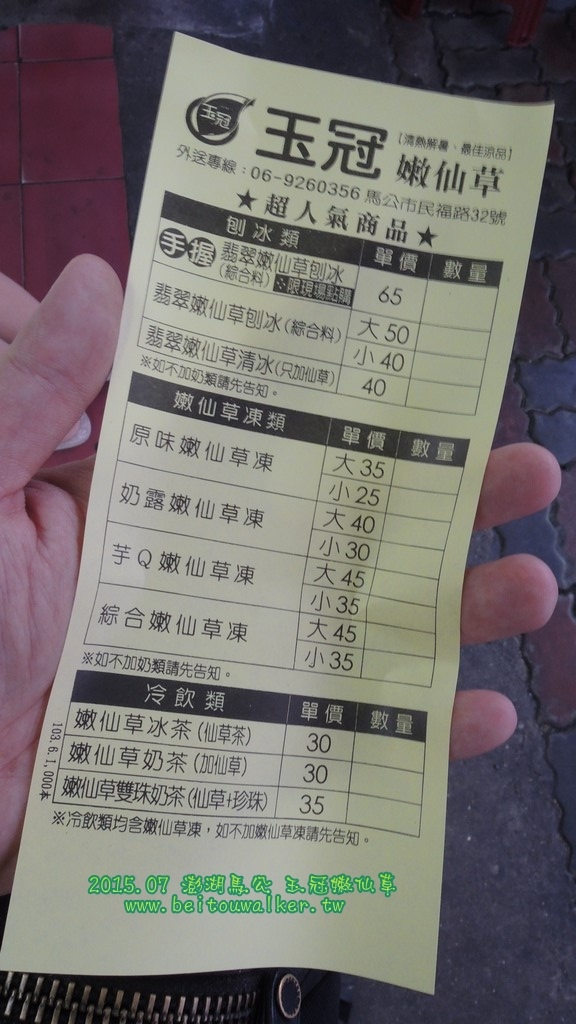 玉冠
玉冠
【清熱解暑、最佳涼品】
嫩仙草
外送專線：06-9260356 馬公市民福路32號
★超人氣商品★
刨冰類 單價 數量
手握 翡翠嫩仙草刨冰 65
(綜合料) ※限現場點購
翡翠嫩仙草刨冰(綜合料) 大50
小40
翡翠嫩仙草清冰(只加仙草) 40
※如不加奶類請先告知。
嫩仙草凍類 單價 數量
原味嫩仙草凍 大35
小25
奶露嫩仙草凍 大40
小30
芋Q嫩仙草凍 大45
小35
綜合嫩仙草凍 大45
小35
※如不加奶類請先告知。
冷飲類 單價 數量
嫩仙草冰茶(仙草茶) 30
嫩仙草奶茶(加仙草) 30
嫩仙草雙珠奶茶(仙草+珍珠) 35
※冷飲類均含嫩仙草凍，如不加嫩仙草凍請先告知。
103.6.1.000本
2015.07 澎湖馬公 玉冠嫩仙草
www.beitouwalker.tw